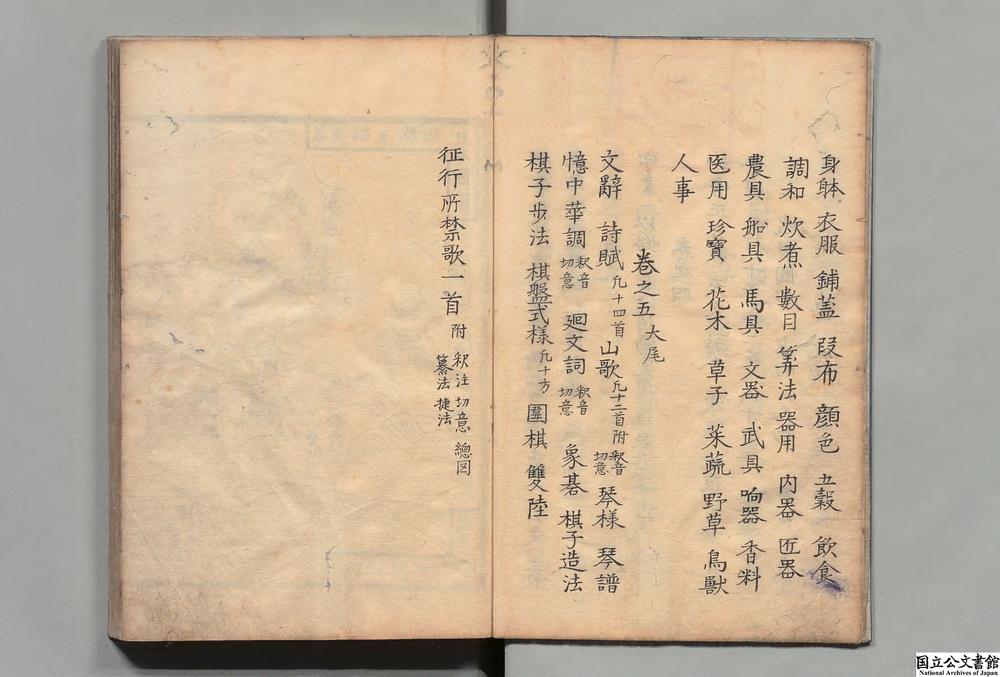 身躰 衣服 鋪蓋 叚布 顔色 五穀 飲食
調和 炊煮 數目 筭法 器用 内器 匠器
農具 船具 馬具 文器 武具 响器 香料
医用 珍寶 花木 草子 菜蔬 野草 鳥獸
人事
卷之五 大尾
文辭 詩賦 凢十四首 山歌 凢十二首 附 釈音 切意 琴様 琴譜
憶中華調 釈音 切意 廻文詞 釈音 切意 象碁 棋子造法
棋子步法 棋盤式様 凢十方 圍棋 雙陸
征行所禁歌一首 附 釈注 切意 總図 纂法 捷法
国立公文書館
National Archives of Japan